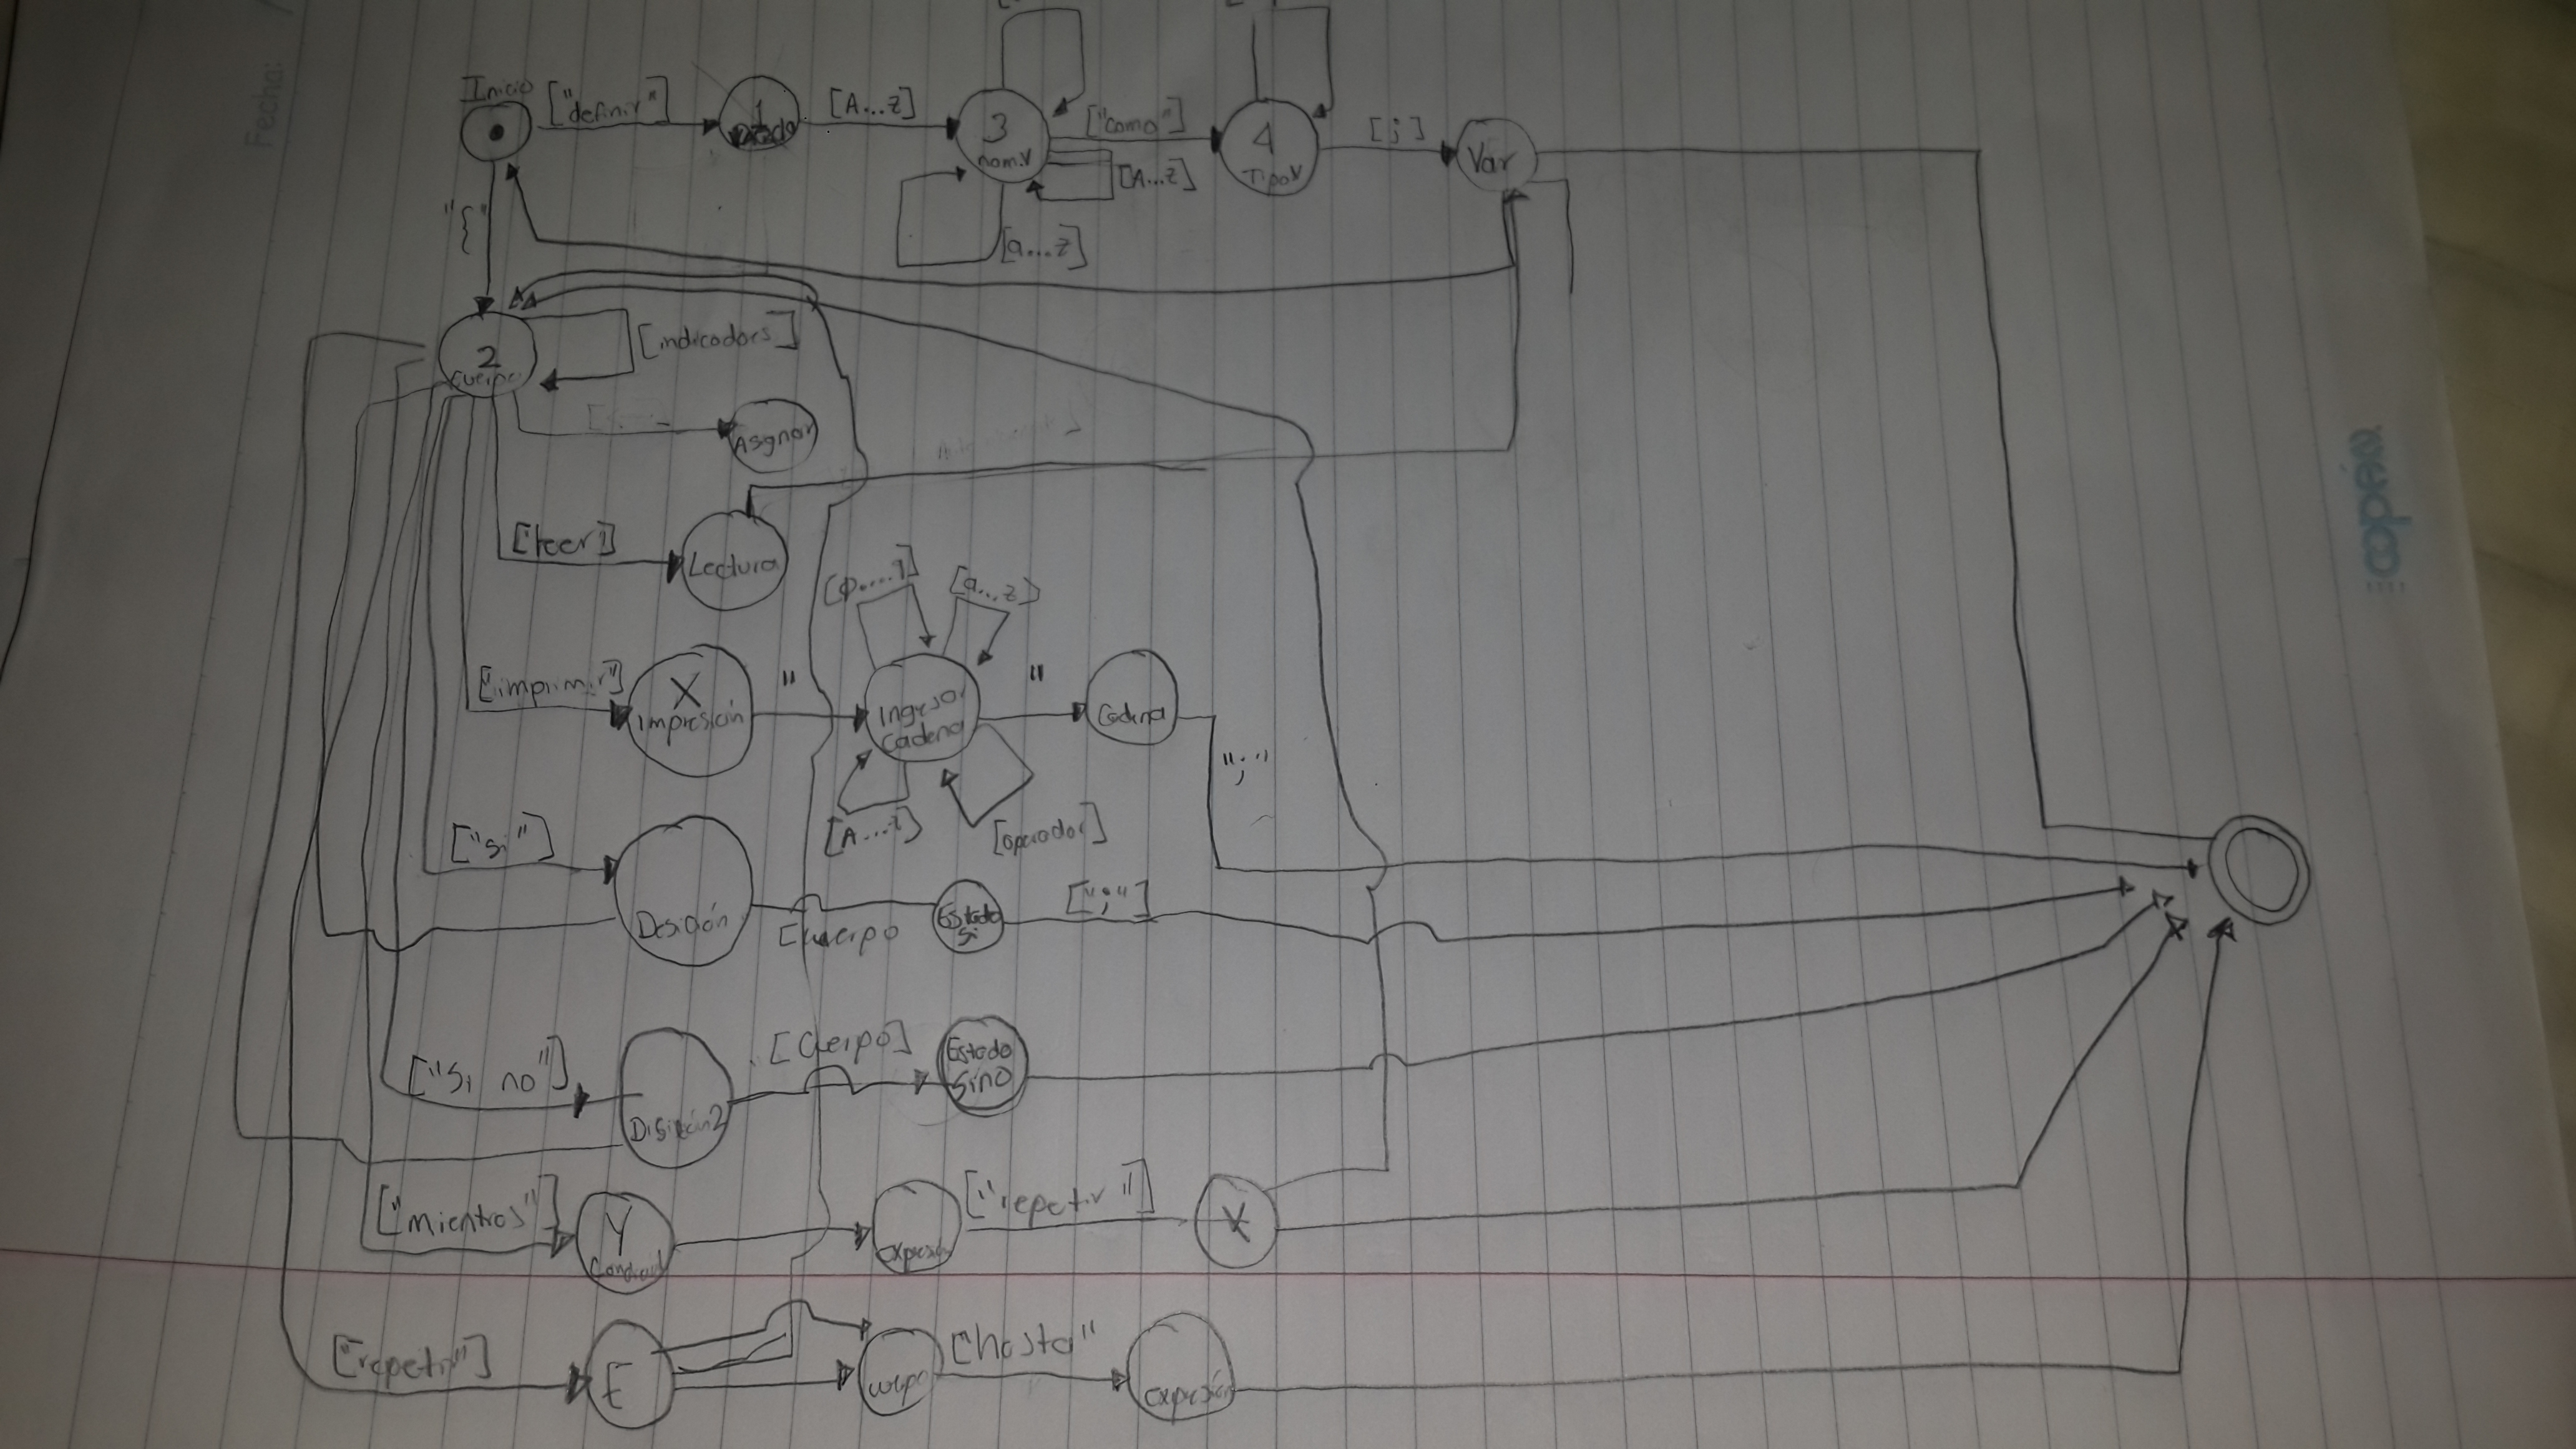 Fecha:
Inicio ["definir"] 1 [A...z] 3 nom.V ["como"] 4 Tipo.V [;] Var
[a...z] [A...z]
"{"
2 Cuerpo [indicadors]
Asgnar
[leer] Lectura
[imprimir] X Impresión " Ingresar Cadena " Cadena ";"
[0....9] [a...z]
[A...z] [operador]
["si"] Desición [Cuerpo Estado Si [";"]
["Si no"] Disición2 [Cuerpo] Estado Sino
["mientras"] Y expresión ["repetir"] X
["repetir"] F cuerpo ["hasta" expresión